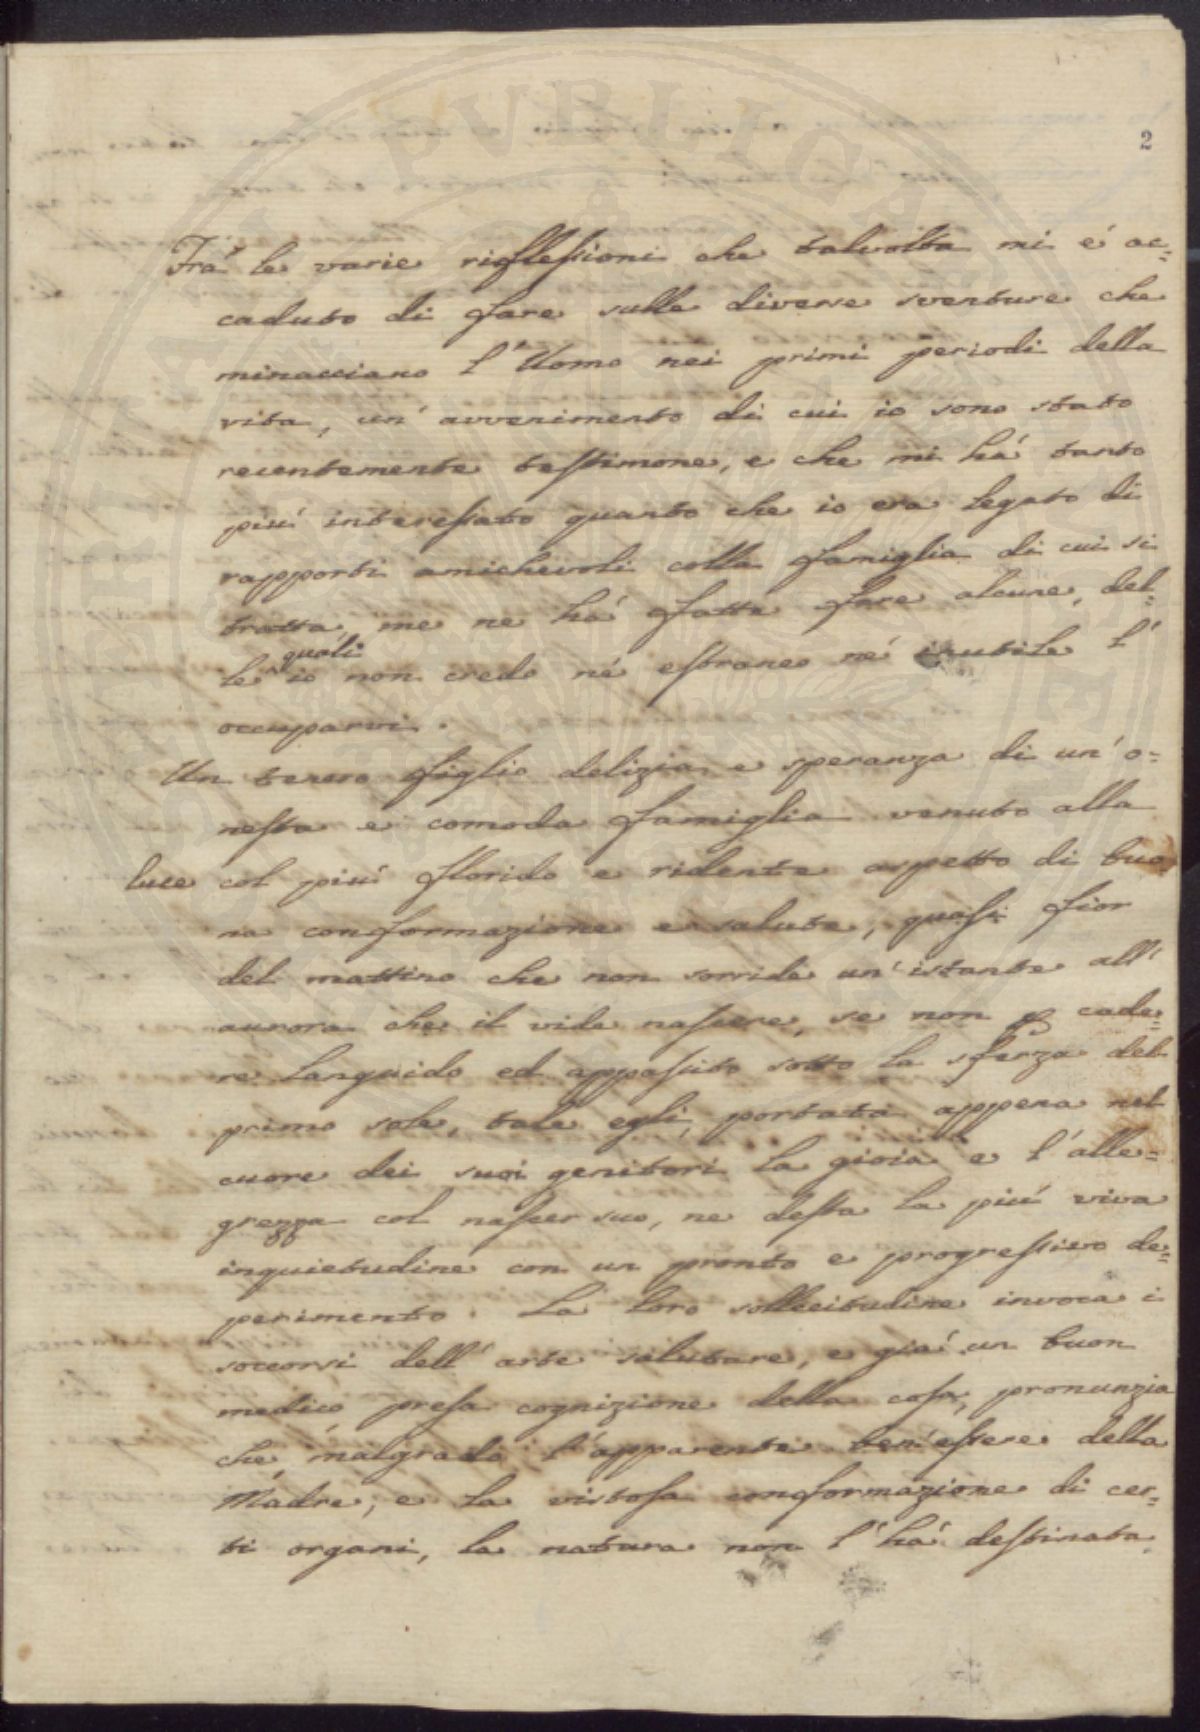 2
Frà le varie riflessioni che talvolta mi é ac=
caduto di fare sulle diverse sventure che
minacciano l'Uomo nei primi periodi della
vita, un' avvenimento di cui io sono stato
recentemente testimone, e che mi há tanto
piú interessato quanto che io era legato di
rapporti amichevoli colla famiglia di cui si
tratta, me ne há fatte fare alcune, del=
le quali io non credo né estraneo né inutile l'
occuparvi.
Un tenero figlio delizia e speranza di un' o=
nesta e comoda famiglia venuto alla
luce col piú florido e ridente aspetto di buo
na conformazione e salute, quasi fior
del mattino che non sorride un' istante all'
aurora che il vide nascere, se non p cade=
re languido ed appassito sotto la sferza del
primo sole, tale egli, portata appena nel
cuore dei suoi genitori la gioia e l'alle=
grezza col nascer suo, ne desta la piú viva
inquietudine con un pronto e progressivo de=
perimento. La loro sollecitudine invoca i
soccorsi dell' arte salutare, e giá un buon
medico presa cognizione della cosa, pronunzia
che malgrado l'apparente ben'essere della
Madre, e la vistosa conformazione di cer=
ti organi, la natura non l'há destinata
PVBLICA